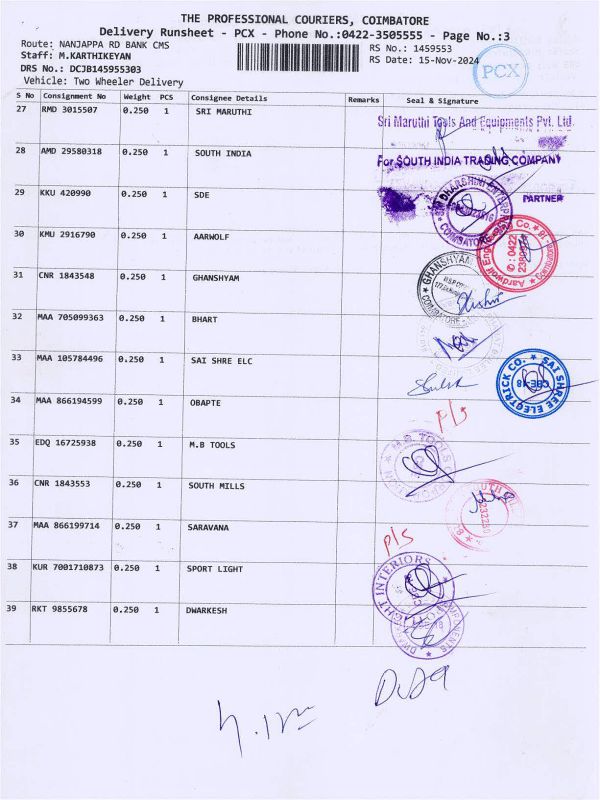 THE PROFESSIONAL COURIERS, COIMBATORE
Delivery Runsheet - PCX - Phone No.:0422-3505555 - Page No.:3
Route: NANJAPPA RD BANK CMS
RS No.: 1459553
Staff: M.KARTHIKEYAN
RS Date: 15-Nov-2024
DRS No.: DCJB145955303
PCX
Vehicle: Two Wheeler Delivery
S No Consignment No Weight PCS Consignee Details Remarks Seal & Signature
27 RMD 3015507 0.250 1 SRI MARUTHI
Sri Maruthi Tools And Equipments Pvt. Ltd.
28 AMD 29580318 0.250 1 SOUTH INDIA
For SOUTH INDIA TRADING COMPANY
29 KKU 420990 0.250 1 SDE
PARTNER
30 KMU 2916790 0.250 1 AARWOLF
31 CNR 1843548 0.250 1 GHANSHYAM
GHANSHYAM
COIMBATORE
32 MAA 705099363 0.250 1 BHART
33 MAA 105784496 0.250 1 SAI SHRE ELC
SAI SHREE ELECTRICK CO.
CBE-18
34 MAA 866194599 0.250 1 OBAPTE
P/s
35 EDQ 16725938 0.250 1 M.B TOOLS
M.B. TOOLS
36 CNR 1843553 0.250 1 SOUTH MILLS
37 MAA 866199714 0.250 1 SARAVANA
P/s
38 KUR 7001710873 0.250 1 SPORT LIGHT
INTERIORS
39 RKT 9855678 0.250 1 DWARKESH